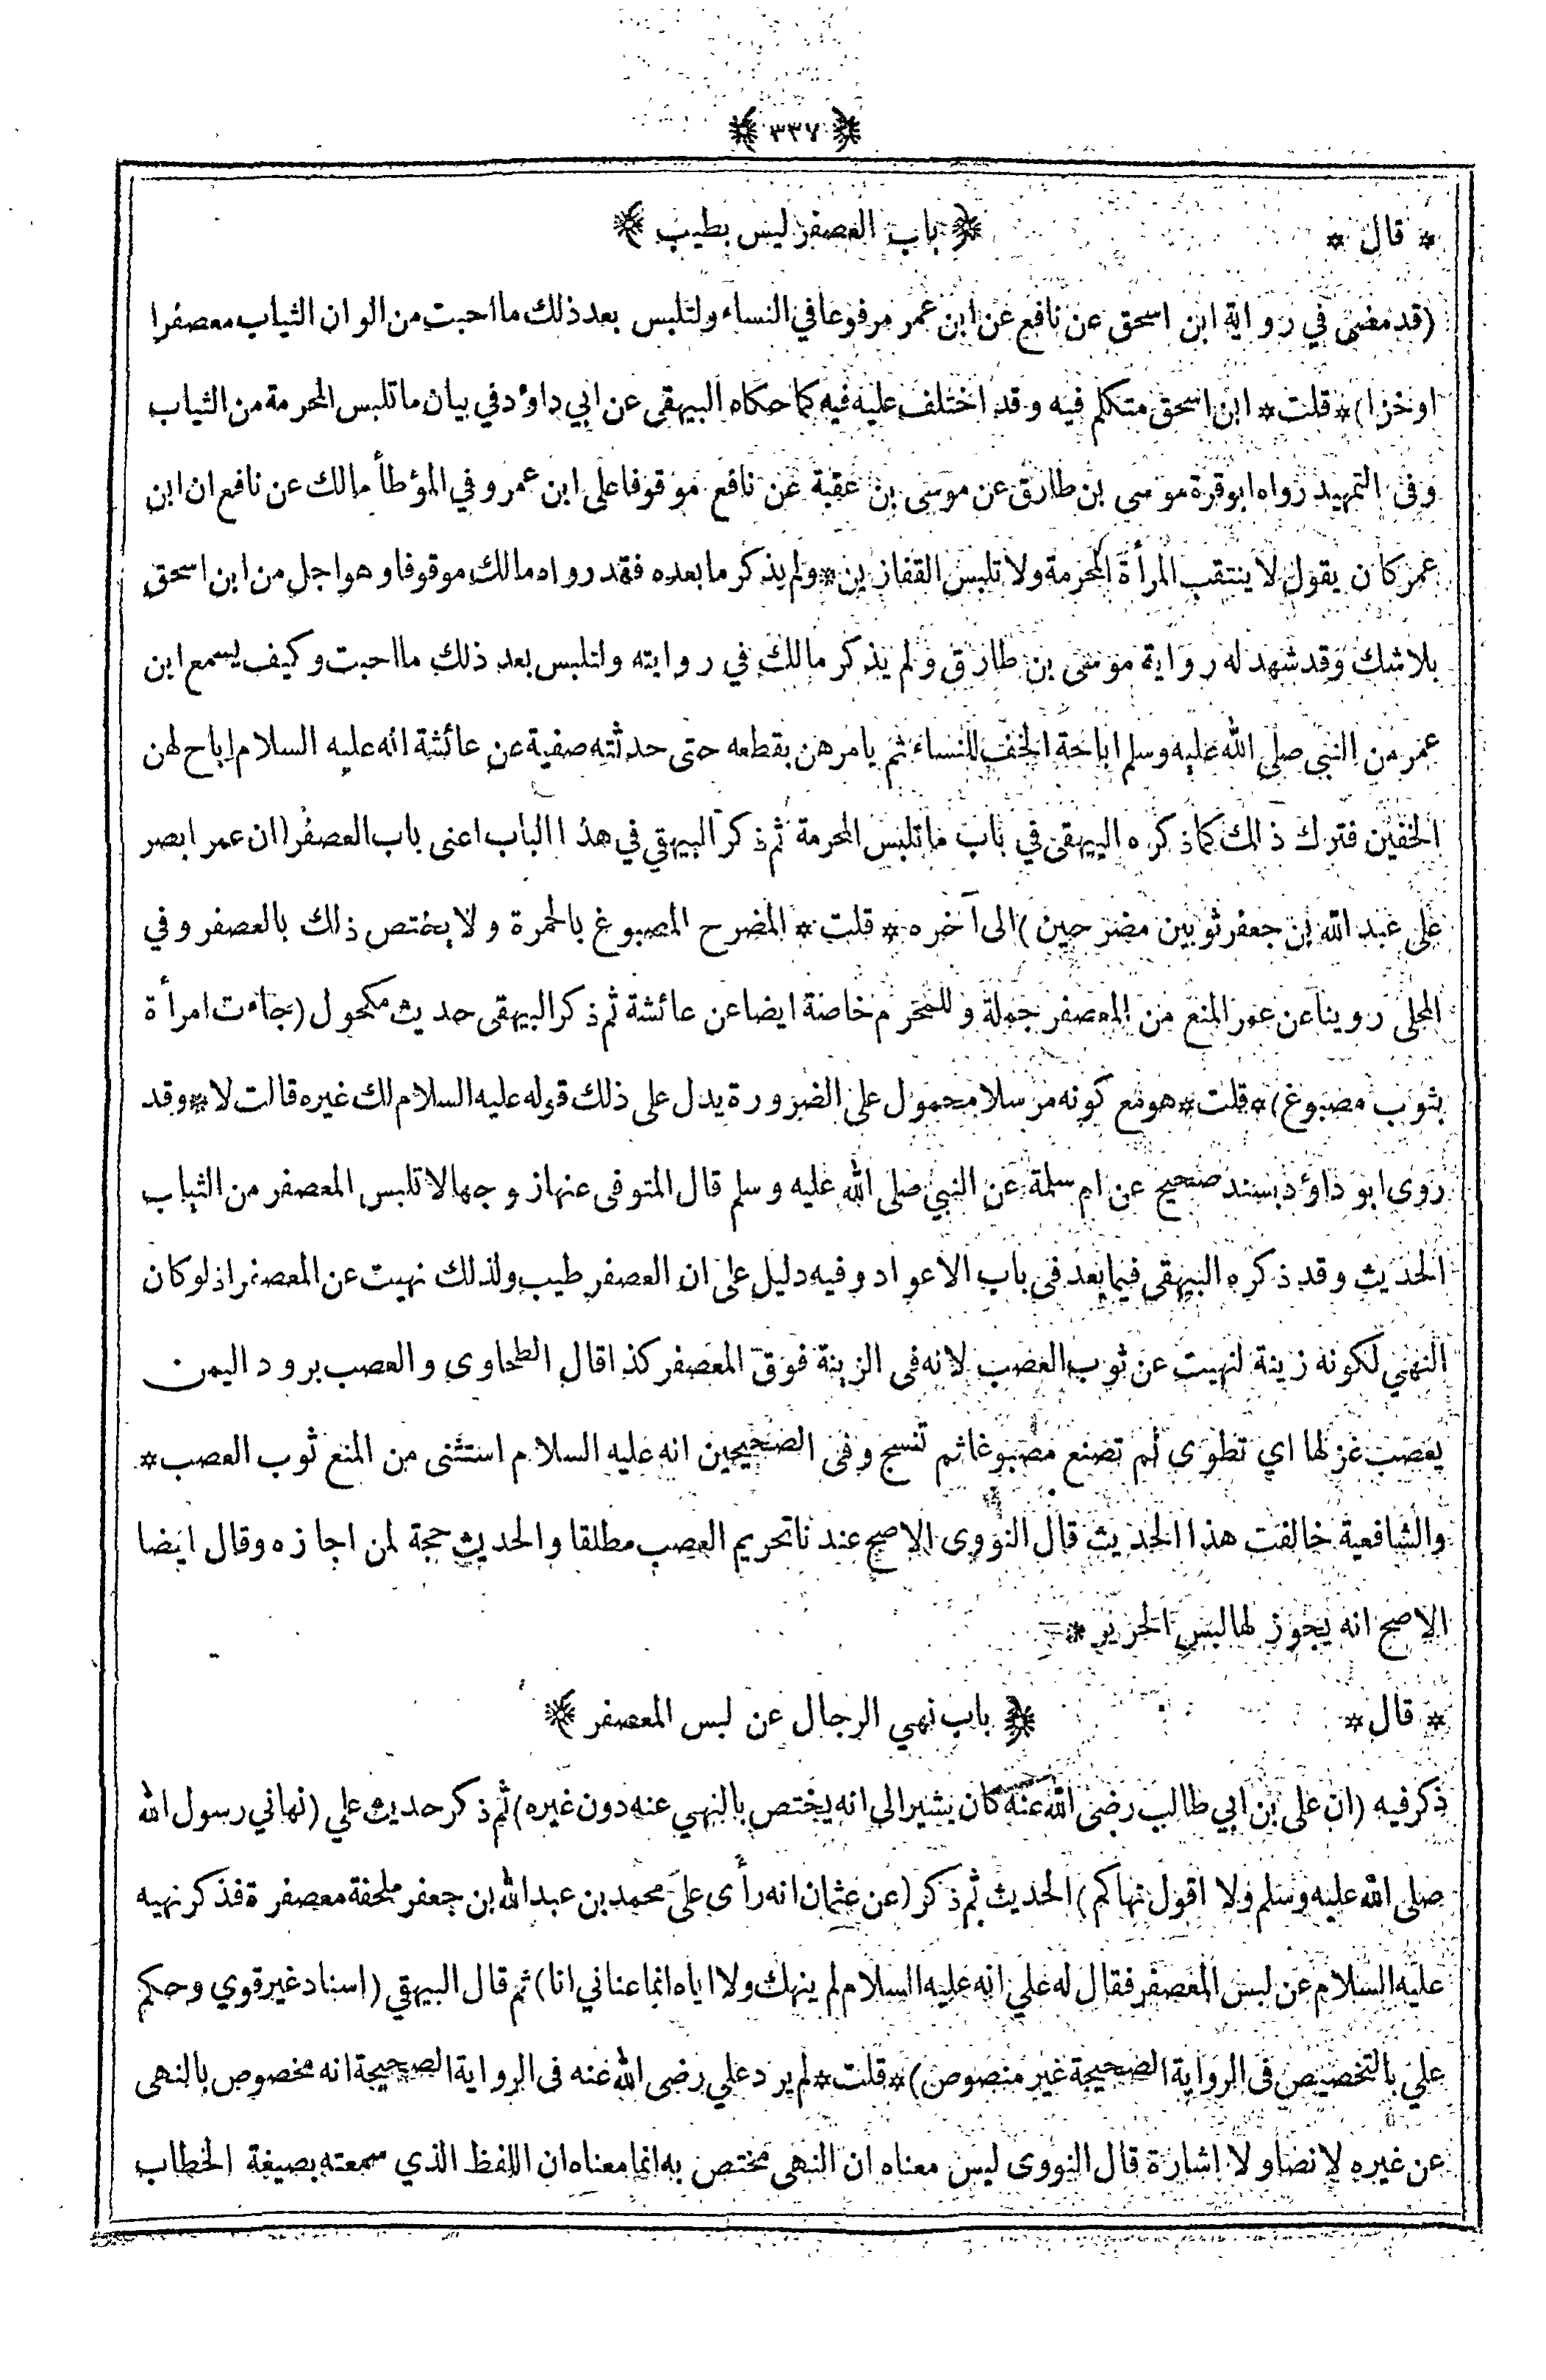 ﴿ ٣٣٧ ﴾
* قال * ﴿ باب العصفر ليس بطيب ﴾
(قد مضى في رواية ابن اسحق عن نافع عن ابن عمر مرفوعا في النساء ولتلبس بعد ذلك ما احبت من الوان الثياب معصفرا
او خزا) * قلت * ابن اسحق متكلم فيه وقد اختلف عليه فيه كما حكاه البيهقى عن ابي داؤد في بيان ما تلبس المحرمة من الثياب
وفى التمهيد رواه ابو قرة موسى بن طارق عن موسى بن عقبة عن نافع موقوفا على ابن عمر وفي المؤطأ مالك عن نافع ان ابن
عمر كان يقول لا ينتقب المرأة المحرمة ولا تلبس القفازين * ولم يذكر ما بعده فقد رواه مالك موقوفا وهو اجل من ابن اسحق
بلا شك وقد شهد له رواية موسى بن طارق ولم يذكر مالك في روايته ولتلبس بعد ذلك ما احبت وكيف يسمع ابن
عمر من النبي صلى الله عليه وسلم اباحة الخف للنساء ثم يامرهن بقطعه حتى حدثته صفية عن عائشة انه عليه السلام اباح لهن
الخفين فترك ذلك كما ذكره البيهقى في باب ما تلبس المحرمة ثم ذكر البيهقي في هذا الباب اعنى باب العصفر (ان عمر ابصر
على عبد الله بن جعفر ثوبين مضرجين) الى آخره * قلت * المضرح المصبوغ بالحمرة ولا يختص ذلك بالعصفر وفي
المحلى روينا عن عمر المنع من المعصفر جملة وللمحرم خاصة ايضا عن عائشة ثم ذكر البيهقى حديث مكحول (جاءت امرأة
بثوب مصبوغ) * قلت * هو مع كونه مرسلا محمول على الضرورة يدل على ذلك قوله عليه السلام لك غيره قالت لا * وقد
روى ابو داؤد بسند صحيح عن ام سلمة عن النبي صلى الله عليه وسلم قال المتوفى عنها زوجها لا تلبس المعصفر من الثياب
الحديث وقد ذكره البيهقى فيما بعد فى باب الاعواد وفيه دليل على ان العصفر طيب ولذلك نهيت عن المعصفر اذ لو كان
النهي لكونه زينة لنهيت عن ثوب العصب لانه فى الزينة فوق المعصفر كذا قال الطحاوى والعصب برود اليمن
يعصب غزلها اي تطوى ثم تصنع مصبوغا ثم تنسج وفى الصحيحين انه عليه السلام استثنى من المنع ثوب العصب *
والشافعية خالفت هذا الحديث قال النووى الاصح عندنا تحريم العصب مطلقا والحديث حجة لمن اجازه وقال ايضا
الاصح انه يجوز لها لبس الحرير *
* قال * ﴿ باب نهي الرجال عن لبس المعصفر ﴾
ذكر فيه (ان على بن ابي طالب رضى الله عنه كان يشير الى انه يختص بالنهي عنه دون غيره) ثم ذكر حديث علي (نهاني رسول الله
صلى الله عليه وسلم ولا اقول نهاكم) الحديث ثم ذكر (عن عثمان انه رأى على محمد بن عبد الله بن جعفر ملحفة معصفرة فذكر نهيه
عليه السلام عن لبس المعصفر فقال له علي انه عليه السلام لم ينهك ولا اياه انما عناني انا) ثم قال البيهقي (اسناد غير قوي وحكم
علي بالتخصيص فى الرواية الصحيحة غير منصوص) * قلت * لم يرد علي رضى الله عنه فى الرواية الصحيحة انه مخصوص بالنهى
عن غيره لا نصا ولا اشارة قال النووى ليس معناه ان النهى مختص به انما معناه ان اللفظ الذي سمعته بصيغة الخطاب